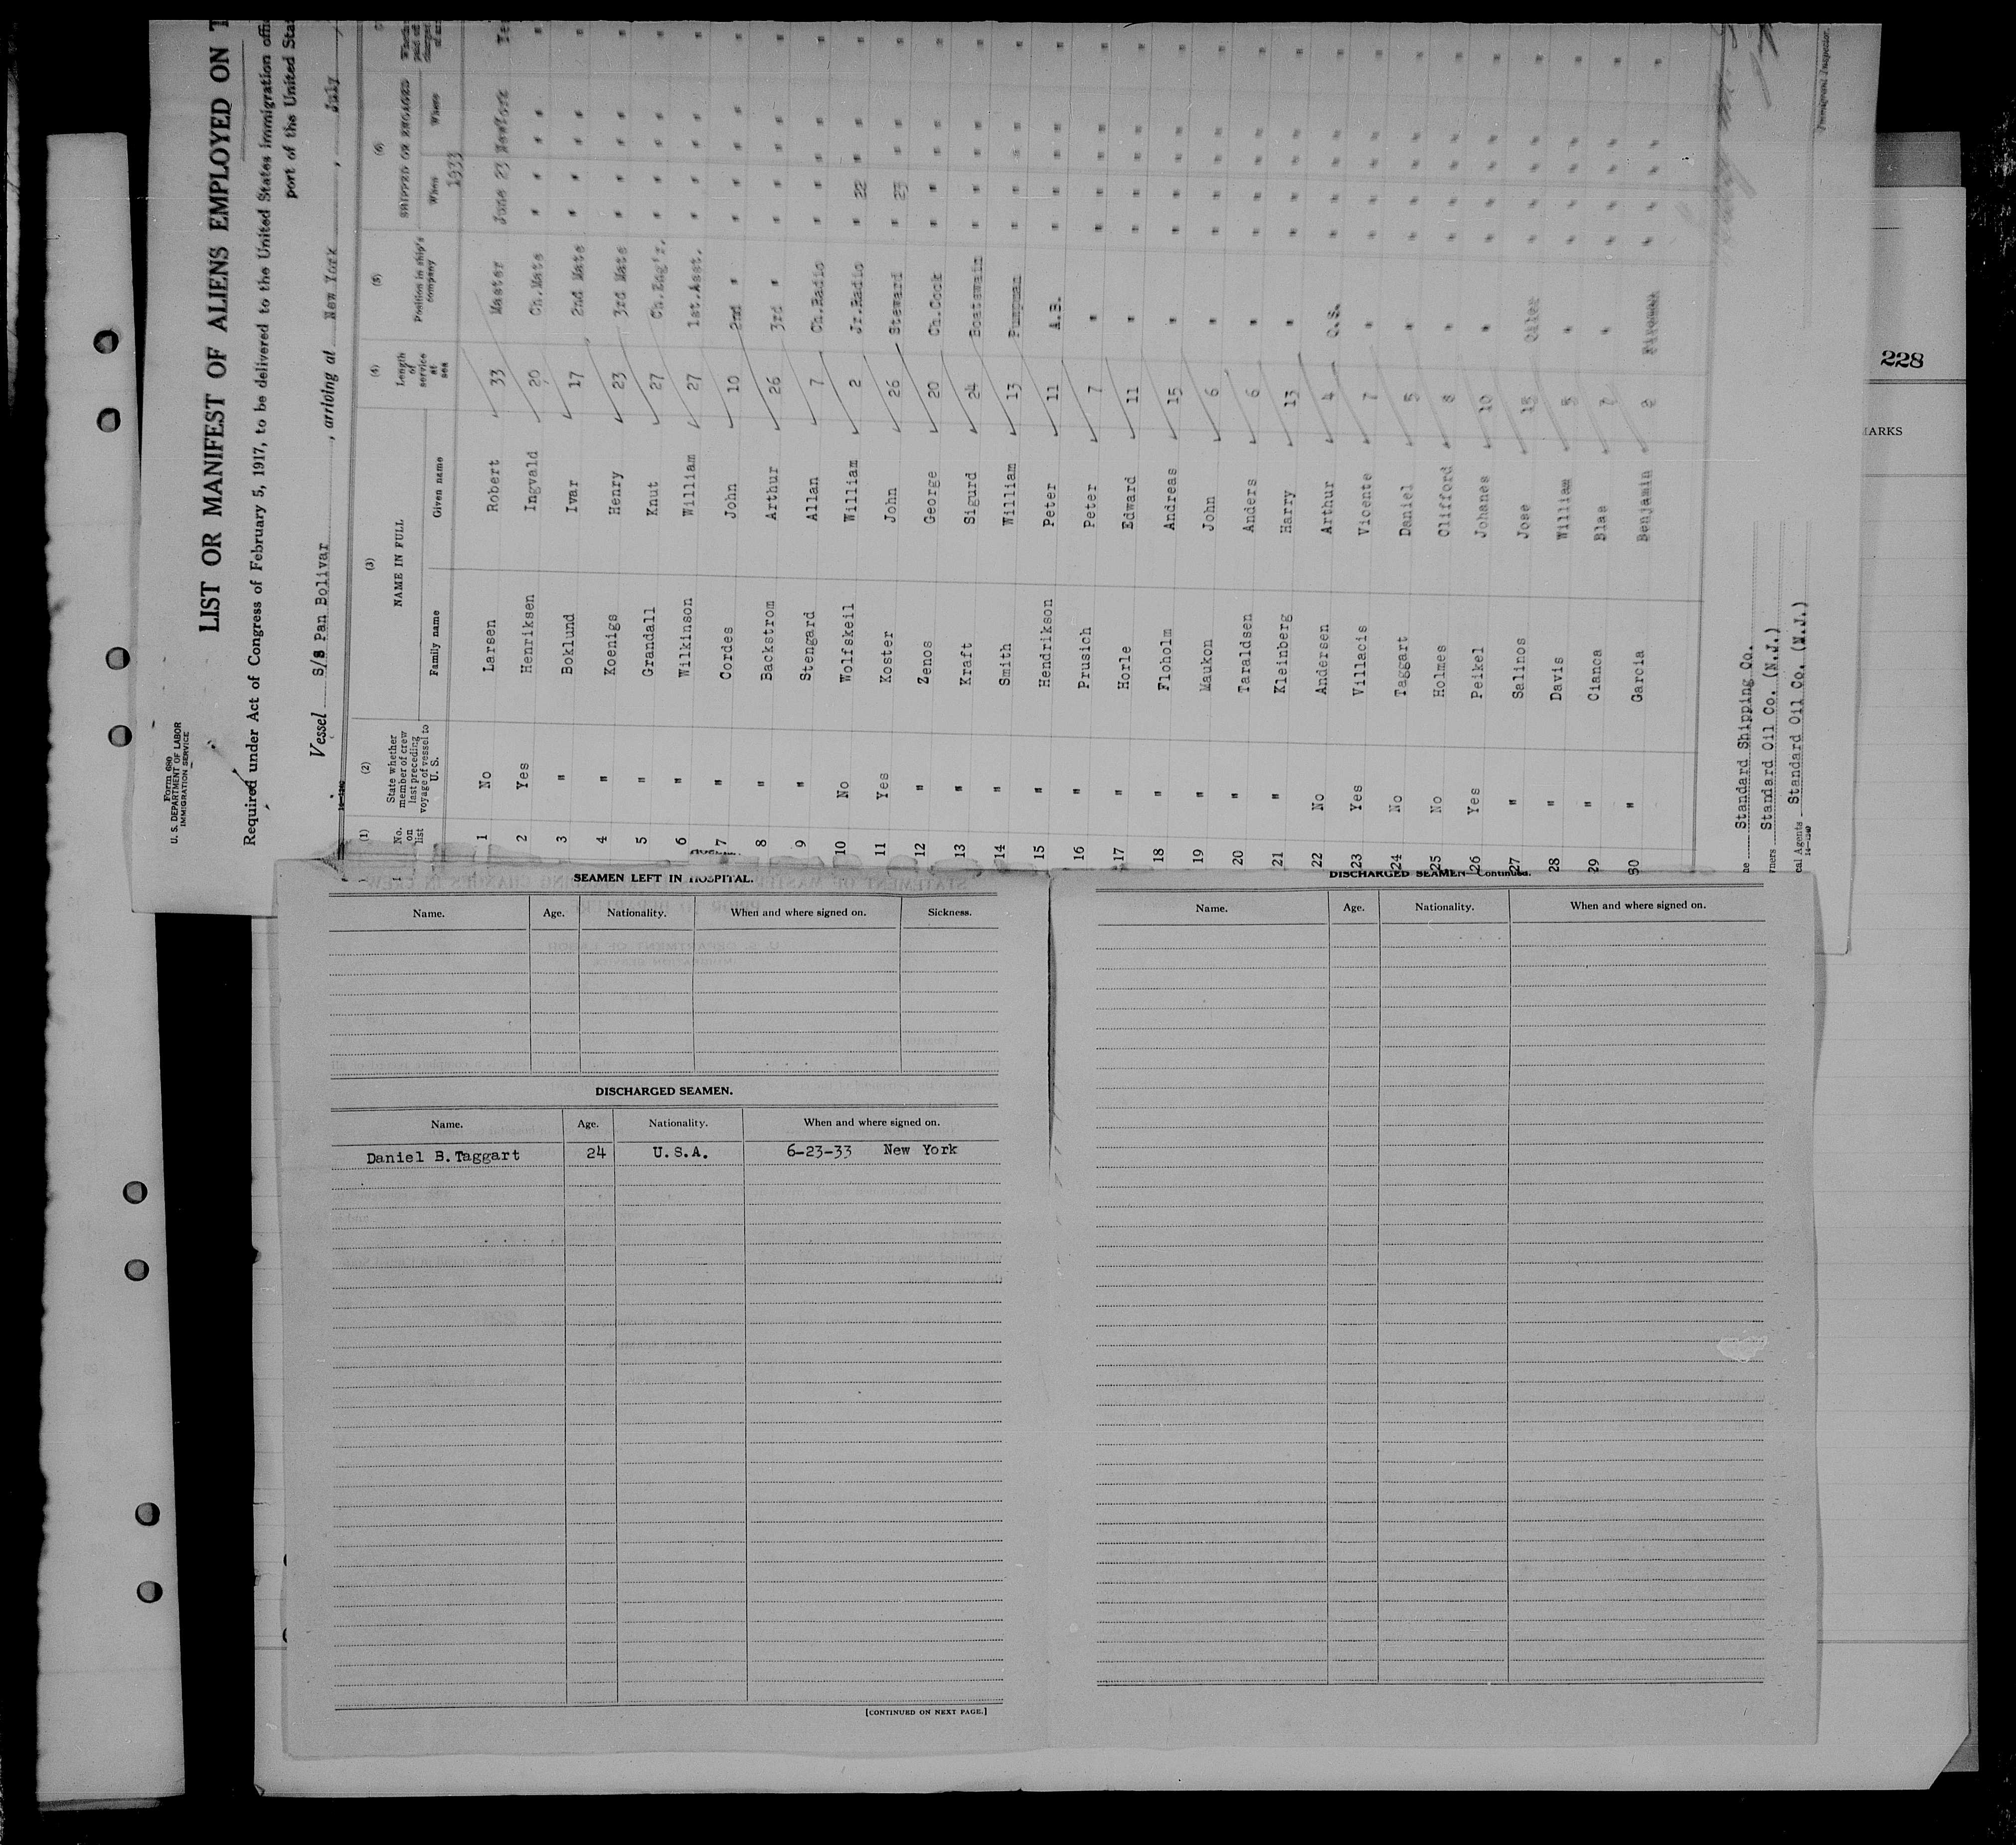 Form 680
U. S. DEPARTMENT OF LABOR
IMMIGRATION SERVICE
LIST OR MANIFEST OF ALIENS EMPLOYED ON T
Required under Act of Congress of February 5, 1917, to be delivered to the United States immigration offi
port of the United Sta
Vessel S/S Pan Bolivar, arriving at New York, July
(1) (2) (3) (4) (5) (6)
No. on list State whether member of crew last preceding voyage of vessel to U. S. NAME IN FULL Family name Given name Length of service at sea Position in ship's company SHIPPED OR ENGAGED When Where
1933
1 No Larsen Robert 33 Master June 23 NewYork
2 Yes Henriksen Ingvald 20 Ch.Mate " " "
3 " Boklund Ivar 17 2nd Mate " " "
4 " Koenigs Henry 23 3rd Mate " " "
5 " Grandall Knut 27 Ch.Eng'r. " " "
6 " Wilkinson William 27 1st.Asst. " " "
7 " Cordes John 10 2nd " " " "
8 " Backstrom Arthur 26 3rd " " " "
9 " Stengard Allan 7 Ch.Radio " " "
10 No Wolfskeil William 2 Jr.Radio " 22 "
11 Yes Koster John 26 Steward " 23 "
12 " Zenos George 20 Ch.Cook " " "
13 " Kraft Sigurd 24 Boatswain " " "
14 " Smith William 13 Pumpman " " "
15 " Hendrikson Peter 11 A.B. " " "
16 " Prusich Peter 7 " " " "
17 " Horle Edward 11 " " " "
18 " Floholm Andreas 15 " " " "
19 " Maukon John 6 " " " "
20 " Taraldsen Anders 6 " " " "
21 " Kleinberg Harry 13 " " " "
22 No Andersen Arthur 4 O.S. " " "
23 Yes Villacis Vicente 7 " " " "
24 No Taggart Daniel 5 " " " "
25 No Holmes Clifford 8 " " " "
26 Yes Peikel Johanes 10 " " " "
27 " Salinos Jose 15 Oiler " " "
28 " Davis William " " " "
29 " Cianca Blas 7 " " " "
30 " Garcia Benjamin Fireman " " "
Standard Shipping Co.
Standard Oil Co. (N.J.)
Agents Standard Oil Co. (N.J.)
Immigrant Inspector.
228
MARKS
SEAMEN LEFT IN HOSPITAL.
Name. Age. Nationality. When and where signed on. Sickness.
DISCHARGED SEAMEN.
Name. Age. Nationality. When and where signed on.
Daniel B.Taggart 24 U.S.A. 6-23-33 New York
[CONTINUED ON NEXT PAGE.]
DISCHARGED SEAMEN—Continued.
Name. Age. Nationality. When and where signed on.